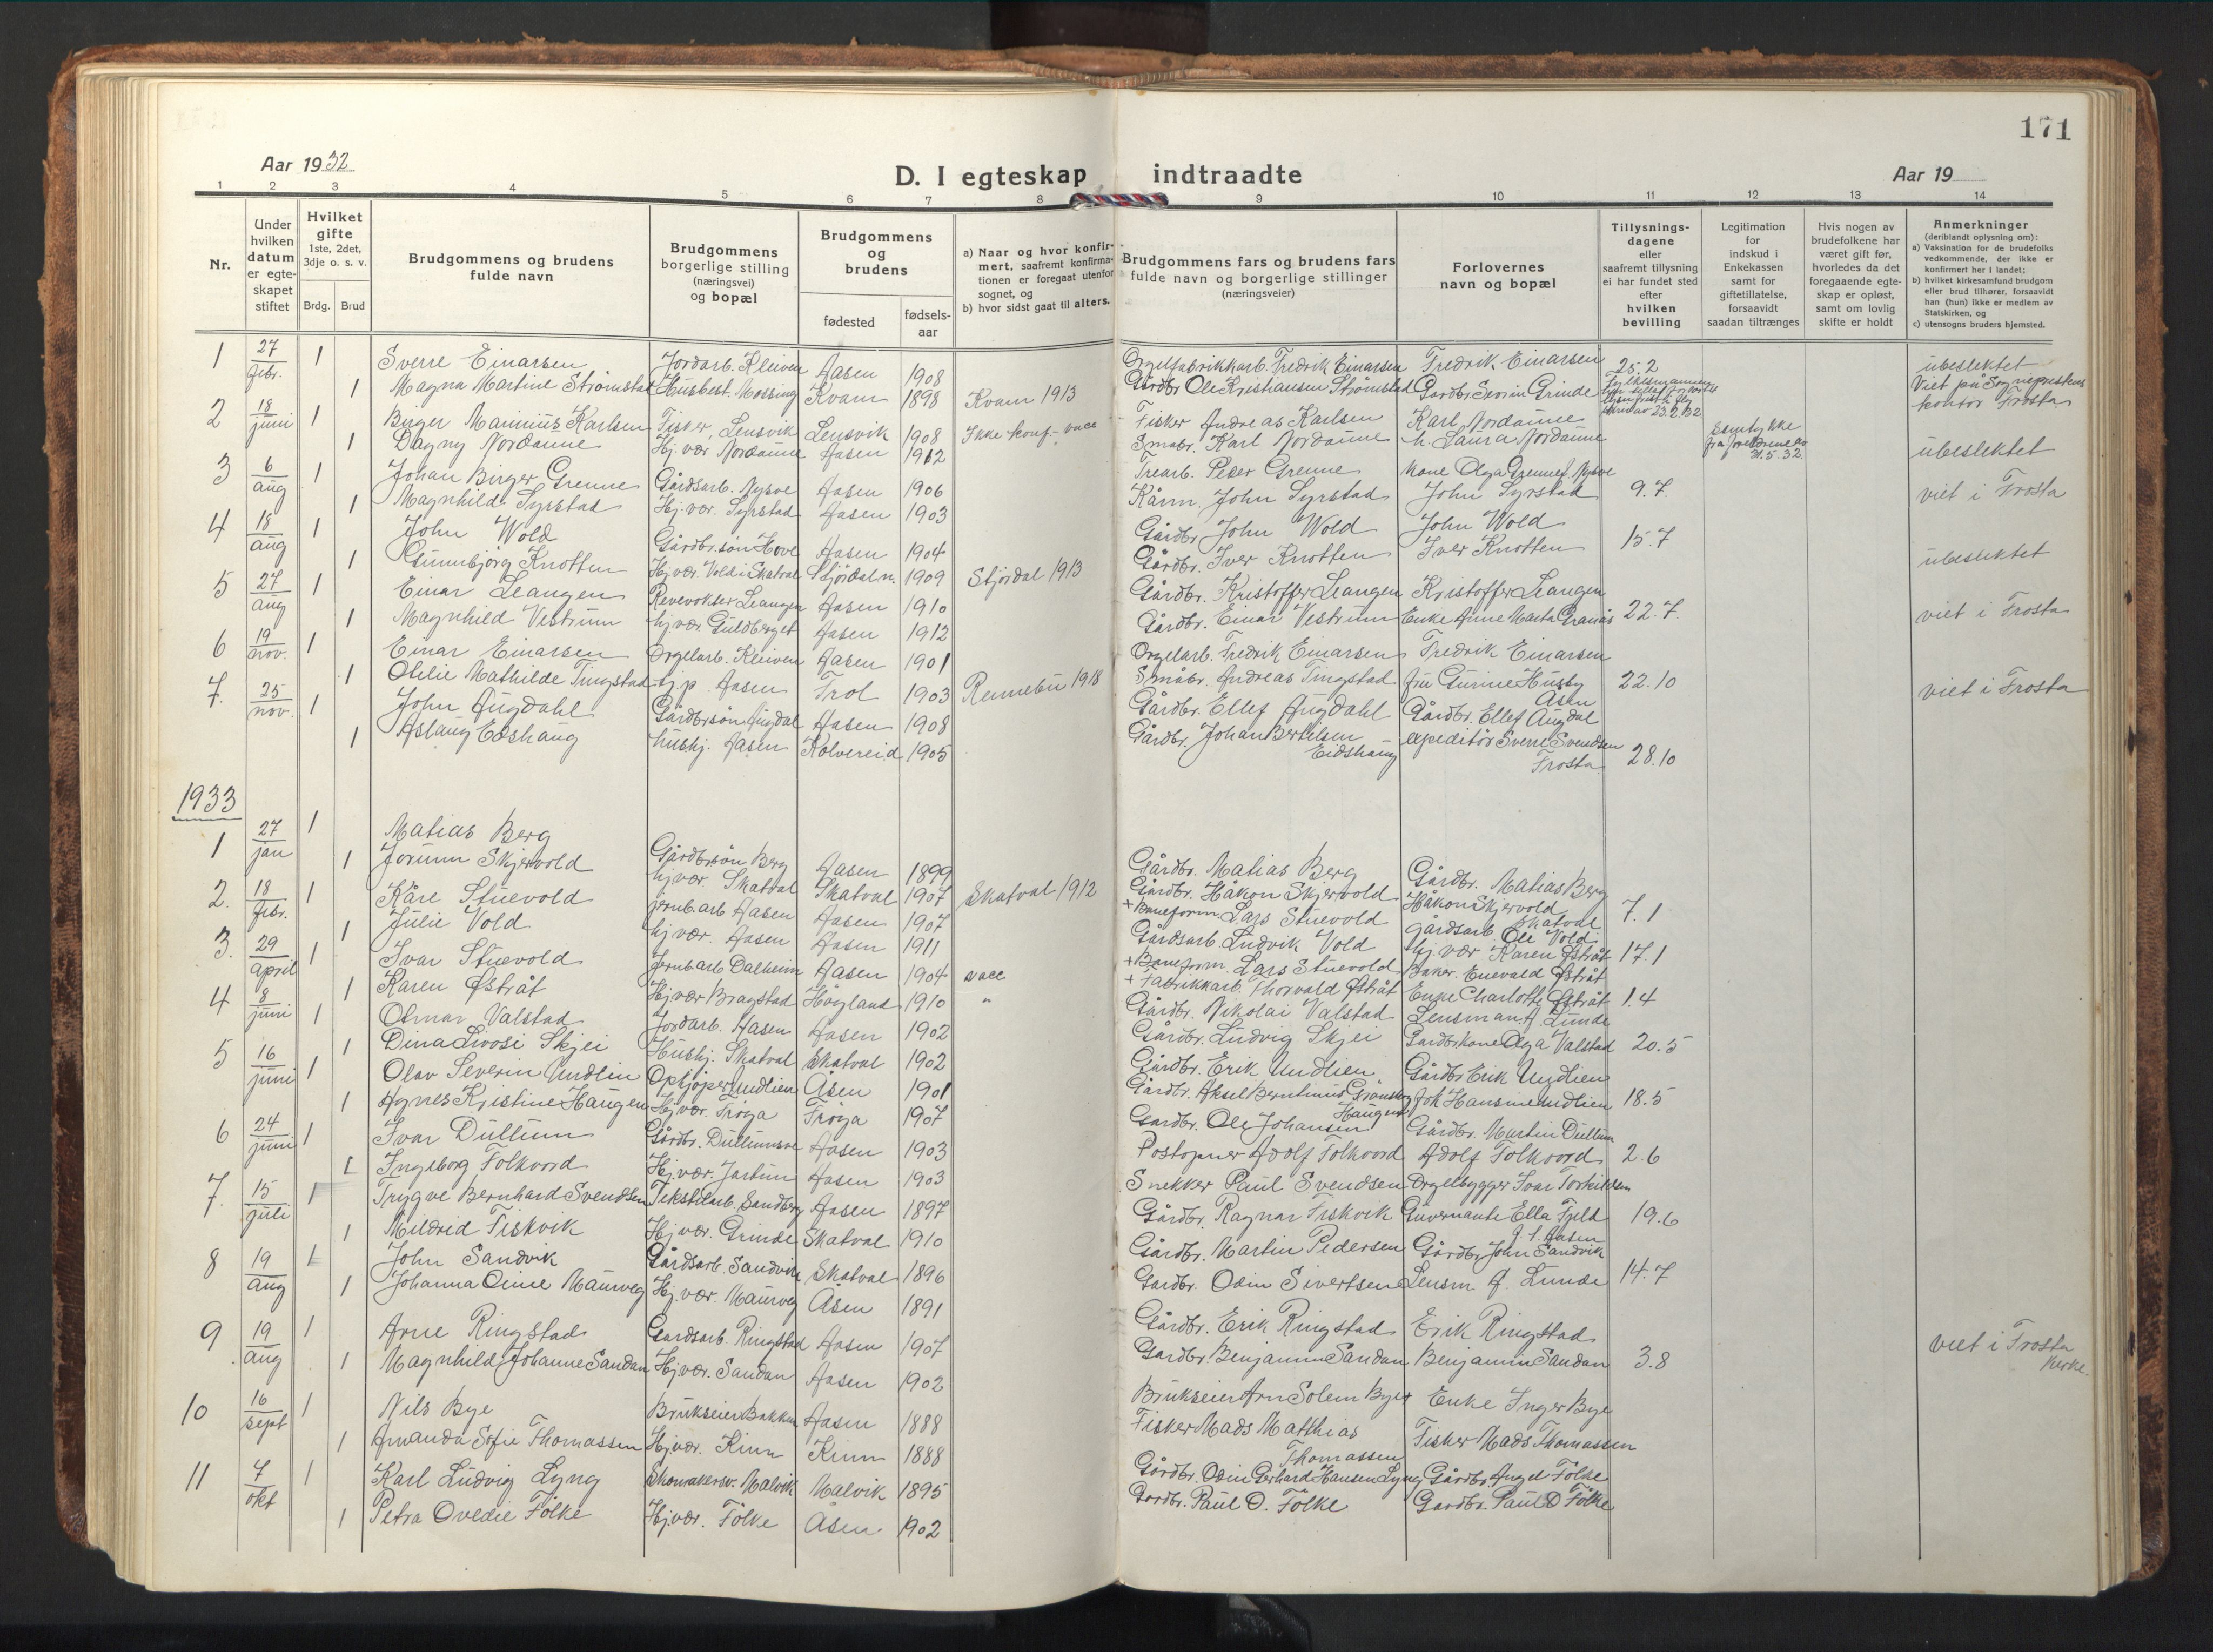 171
Aar 1932
D. I egteskap indtraadte
Aar 19
1 2 3 4 5 6 7 8 9 10 11 12 13 14
Nr.
Under hvilken datum er egte-skapet stiftet
Hvilket gifte 1ste, 2det, 3dje o. s. v.
Brdg. Brud
Brudgommens og brudens fulde navn
Brudgommens borgerlige stilling (næringsvei) og bopæl
Brudgommens og brudens
fødested
fødsels-aar
a) Naar og hvor konfir-mert, saafremt konfirma-tionen er foregaat utenfor sognet, og
b) hvor sidst gaat til alters.
Brudgommens fars og brudens fars fulde navn og borgerlige stillinger (næringsveier)
Forlovernes navn og bopæl
Tillysnings-dagene eller saafremt tillysning ei har fundet sted efter hvilken bevilling
Legitimation for indskud i Enkekassen samt for giftetillatelse, forsaavidt saadan tiltrænges
Hvis nogen av brudefolkene har været gift før, hvorledes da det foregaaende egte-skap er opløst, samt om lovlig skifte er holdt
Anmerkninger (deriblandt oplysning om):
a) Vaksination for de brudefolks vedkommende, der ikke er konfirmert her i landet;
b) hvilket kirkesamfund brudgom eller brud tilhører, forsaavidt han (hun) ikke er medlem av Statskirken, og
c) utensogns bruders hjemsted.
1 27/febr. 1 Sverre Einarsen Jordarb. Kleiven Aasen 1908 Orgelfabrikkarb. Fredrik Einarsen Fredrik Einarsen 25.2 ubeslektet
1 Magna Martine Strømstad Husbest. Mossing Kvam 1898 Kvam 1913 Gårdbr Ole Kristiansen Strømstad Gardbr Sevrin Grinde av 23.2.32 Viet på Sogneprestens kontor Frosta
2 18/juni 1 Birger Marinius Karlsen Fisker, Lensvik Lensvik 1908 Ikke konf. vacc Fisker Andreas Karlsen Karl Nordaune Samtykke
1 Dagny Nordaune Hj. vær Nordaune Aasen 1912 Småbr. Karl Nordaune h. Laura Nordaune fra foreldrene av 21.5.32 ubeslektet
3 6/aug 1 Johan Birger Grenne Gårdsarb. Nysve Aasen 1906 Trearb. Peder Grenne Kone Olga Grenne, Nysve
1 Magnhild Syrstad Hj. vær. Syrstad Aasen 1903 Kårm. John Syrstad John Syrstad 9.7. viet i Frosta
4 18/aug 1 John Wold Gårdbr.søn Hove Aasen 1904 Gårdbr John Wold John Wold 15.7
1 Gunnbjørg Knotten Hj.vær. Vold i Skatval Stjørdalen. 1909 Stjørdal 1913 Gårdbr. Iver Knotten Iver Knotten ubeslektet
5 27/aug 1 Einar Leangen Revevokter Leangen Aasen 1910 Gårdbr. Kristoffer Leangen Kristoffer Leangen
1 Magnhild Vestrum hj.vær. Guldberget Aasen 1912 Gårdbr. Einar Vestrum Enke Anne Marta Granås 22.7. viet i Frosta
6 19/nov. 1 Einar Einarsen Orgelarb. Kleiven Aasen 1901 Orgelarb. Fredrik Einarsen Fredrik Einarsen
1 Otilie Mathilde Tingstad tj.p. Aasen Trol 1903 Rennebu 1918 Småbr. Andreas Tingstad fru Gurine Husby Åsen 22.10 viet i Frosta
7. 25/nov. 1 John Augdahl Gårdbrsøn Augdal Aasen 1908 Gårdbr. Ellef Augdahl Gårdbr. Ellef Augdal
1 Aslaug Edshaug hushj. Aasen Kolvereid 1905 Gårdbr. Johan Bertilsen Eidshaug expeditør Sverre Svendsen Frosta 28.10
1933
1 27/jan 1 Matias Berg Gårdbrsøn Berg Aasen 1899 Gårdbr. Matias Berg Gårdbr. Matias Berg
1 Jorunn Skjervold hj.vær. Skatval Skatval 1907 Skatval 1912 Gårdbr. Håkon Skjervold Håkon Skjervold Skatval 7.1
2. 18/febr. 1 Kåre Stuevold jernb.arb Aasen Aasen 1907 + Baneform. Lars Stuevold gårdsarb Ole Vold
1 Julie Vold hj vær. Aasen Aasen 1911 Gårdsarb. Ludvik Vold hj. vær Karen Østråt 17.1
3. 29/april 1 Ivar Stuevold Jernb.arb Dalheim Aasen 1904 vacc + Baneform. Lars Stuevold Baker. Enevald Østråt
1 Karen Østråt Hj vær Bragstad Høyland 1910 " + Fabrikkarb. Thorvald Østråt Enke Charlotte Østråt 1.4
4 8/juni 1 Otmar Valstad Jordarb. Aasen Aasen 1902 Gårdbr. Nikolai Valstad Lensman A. Lunde
1 Dina Livosi Skjei Hushj. Skatval Skatval 1902 Gårdbr. Ludvig Skjei Gardbrkone Olga Valstad 20.5
5 16/juni 1 Olav Severin Undlien Opkjøper Undlien Åsen 1901 Gårdbr. Erik Undlien Gårdbr Erik Undlien
1 Agnes Kristine Haugen Hj vær. Frøya Frøya 1907 Gårdbr. Aksel Berntinus Grønskag Haugen frk Hansine Undlien 18.5
6 24/juni 1 Ivar Dullum Gårdbr. Dullumsve Aasen 1903 Gardbr. Ole Johansen Gårdbr. Martin Dullum
1 Ingeborg Folkvord Hj. vær. Jartun Aasen 1903 Postopner Adolf Folkvord Adolf Folkvord 2.6
7. 15/juli 1 Trygve Bernhard Svendsen Tekstilarb. Sandberg Aasen 1897 Snekker Paul Svendsen Orgelbygger Ivar Torkildsen
1 Mildrid Fiskvik Hj vær. Grinde Skatval 1910 Gårdbr. Ragnar Fiskvik Guvernante Ella Fjeld Aasen 19.6
8 19/aug 1 John Sandvik Gårdsarb. Sandvik Skatval 1896 Gårdbr. Martin Pedersen Gårdbr John Sandvik
1 Johanna Oline Maurveg Hj. vær. Maurveg Åsen 1891 Gardbr. Odin Sivertsen Lensm. A. Lunde 14.7
9 19/aug 1 Arne Ringstad Gardsarb. Ringstad Aasen 1907 Gårdbr. Erik Ringstad Erik Ringstad
1 Magnhild Johanne Sandan Hj.vær. Sandan Aasen 1902 Gardbr. Benjamin Sandan Benjamin Sandan 3.8 viet i Frosta kirke.
10 16/sept 1 Nils Bye Brukseier Bakken Aasen 1888 Brukseier Arn Solem Bye Enke Inger Bye
1 Amanda Sofie Thomassen Hj.vær. Kinn Kinn 1888 Fisker Mads Matthias Thomassen Fisker Mads Thomassen
11 7/okt 1 Karl Ludvig Lyng Skomakersv. Malvik Malvik 1895 Gårdbr. Odin Gerhard Hansen Lyng Gårdbr. August Følke
1 Petra Ovedie Følke Hj.vær. Følke Åsen 1902 Gardbr. Paul O. Følke Gardbr. Paul O Følke